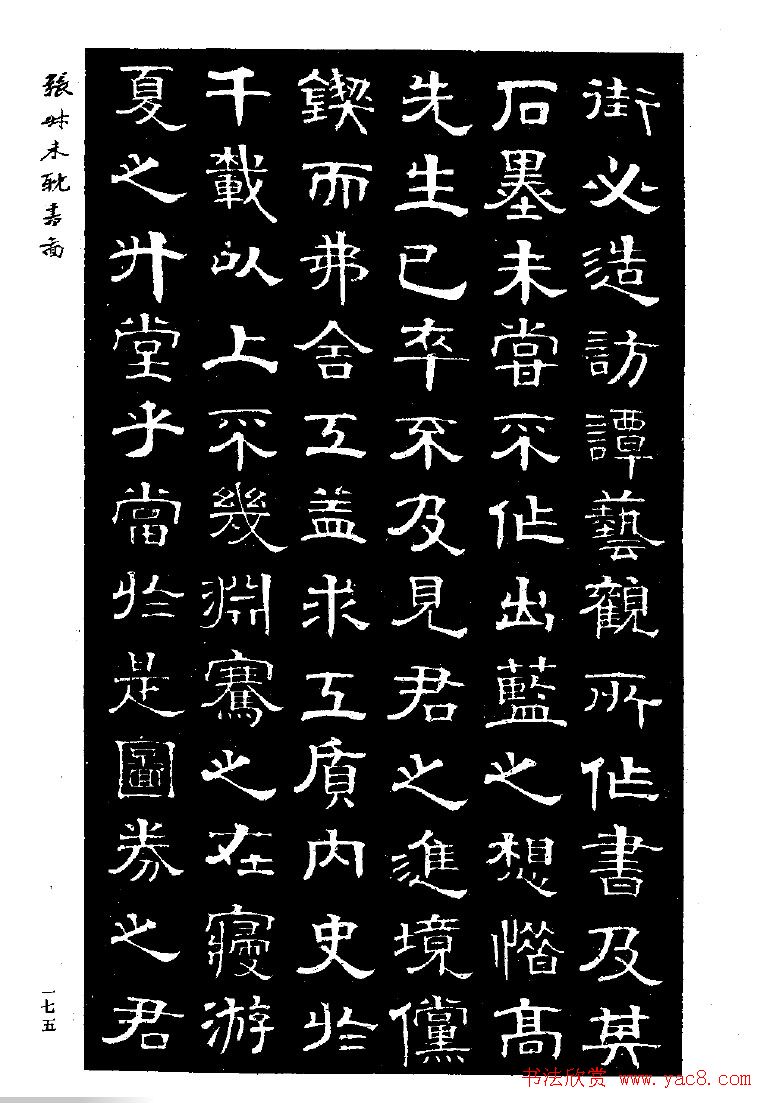 街必造訪譚藝觀所作書及其
石墨未嘗不作出藍之想惜高
先生已卒不及見君之進境儻
鍥而弗舍工益求工質內史於
千載以上不幾淵騫之在寢游
夏之升堂乎當於是圖券之君
張叔未耽書啚
一七五
书法欣赏 www.yac8.com